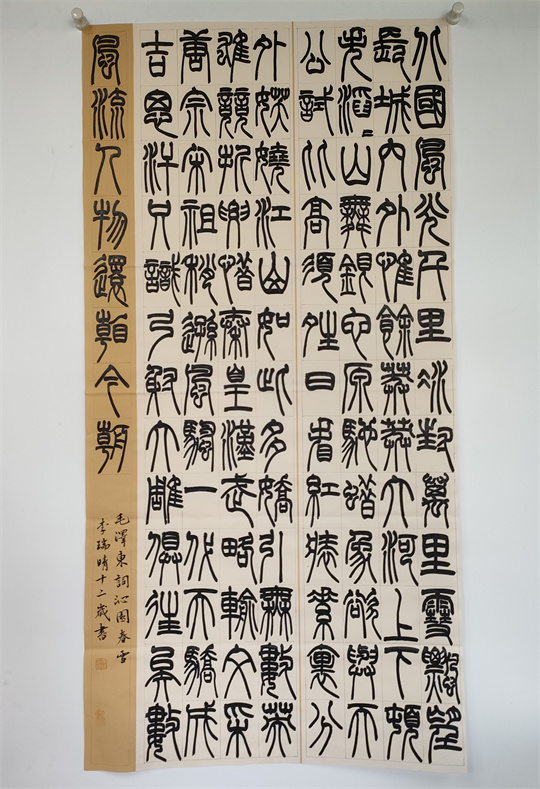 北國風光千里冰封萬里雪飄望
長城內外惟餘莽莽大河上下頓
失滔〻山舞銀蛇原馳蠟象欲與天
公試比高須晴日看紅裝素裹分
外妖嬈江山如此多嬌引無數英
雄競折腰惜秦皇漢武略輸文采
唐宗宋祖稍遜風騷一代天驕成
吉思汗只識弓射大雕俱往矣數
風流人物還看今朝
毛澤東詞沁園春雪
李瑞晴十二歲書